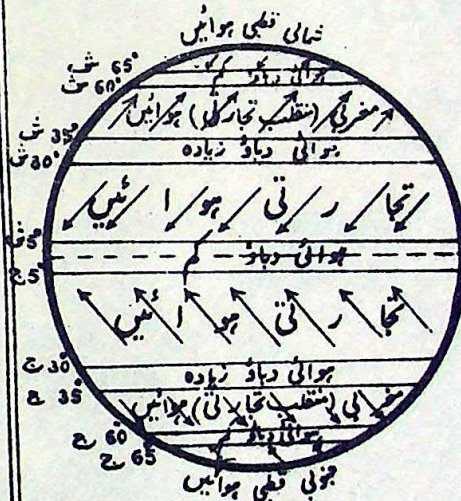 شمالی قطبی ہوائیں
65° ش
ہوائی دباؤ کم
60° ش
مغربی (منقلب تجارتی) ہوائیں
35° ش
ہوائی دباؤ زیادہ
30° ش
تجارتی ہوائیں
5° ش
ہوائی دباؤ کم
5° ج
تجارتی ہوائیں
30° ج
ہوائی دباؤ زیادہ
35° ج
مغربی (منقلب تجارتی) ہوائیں
60° ج
ہوائی دباؤ کم
65° ج
جنوبی قطبی ہوائیں